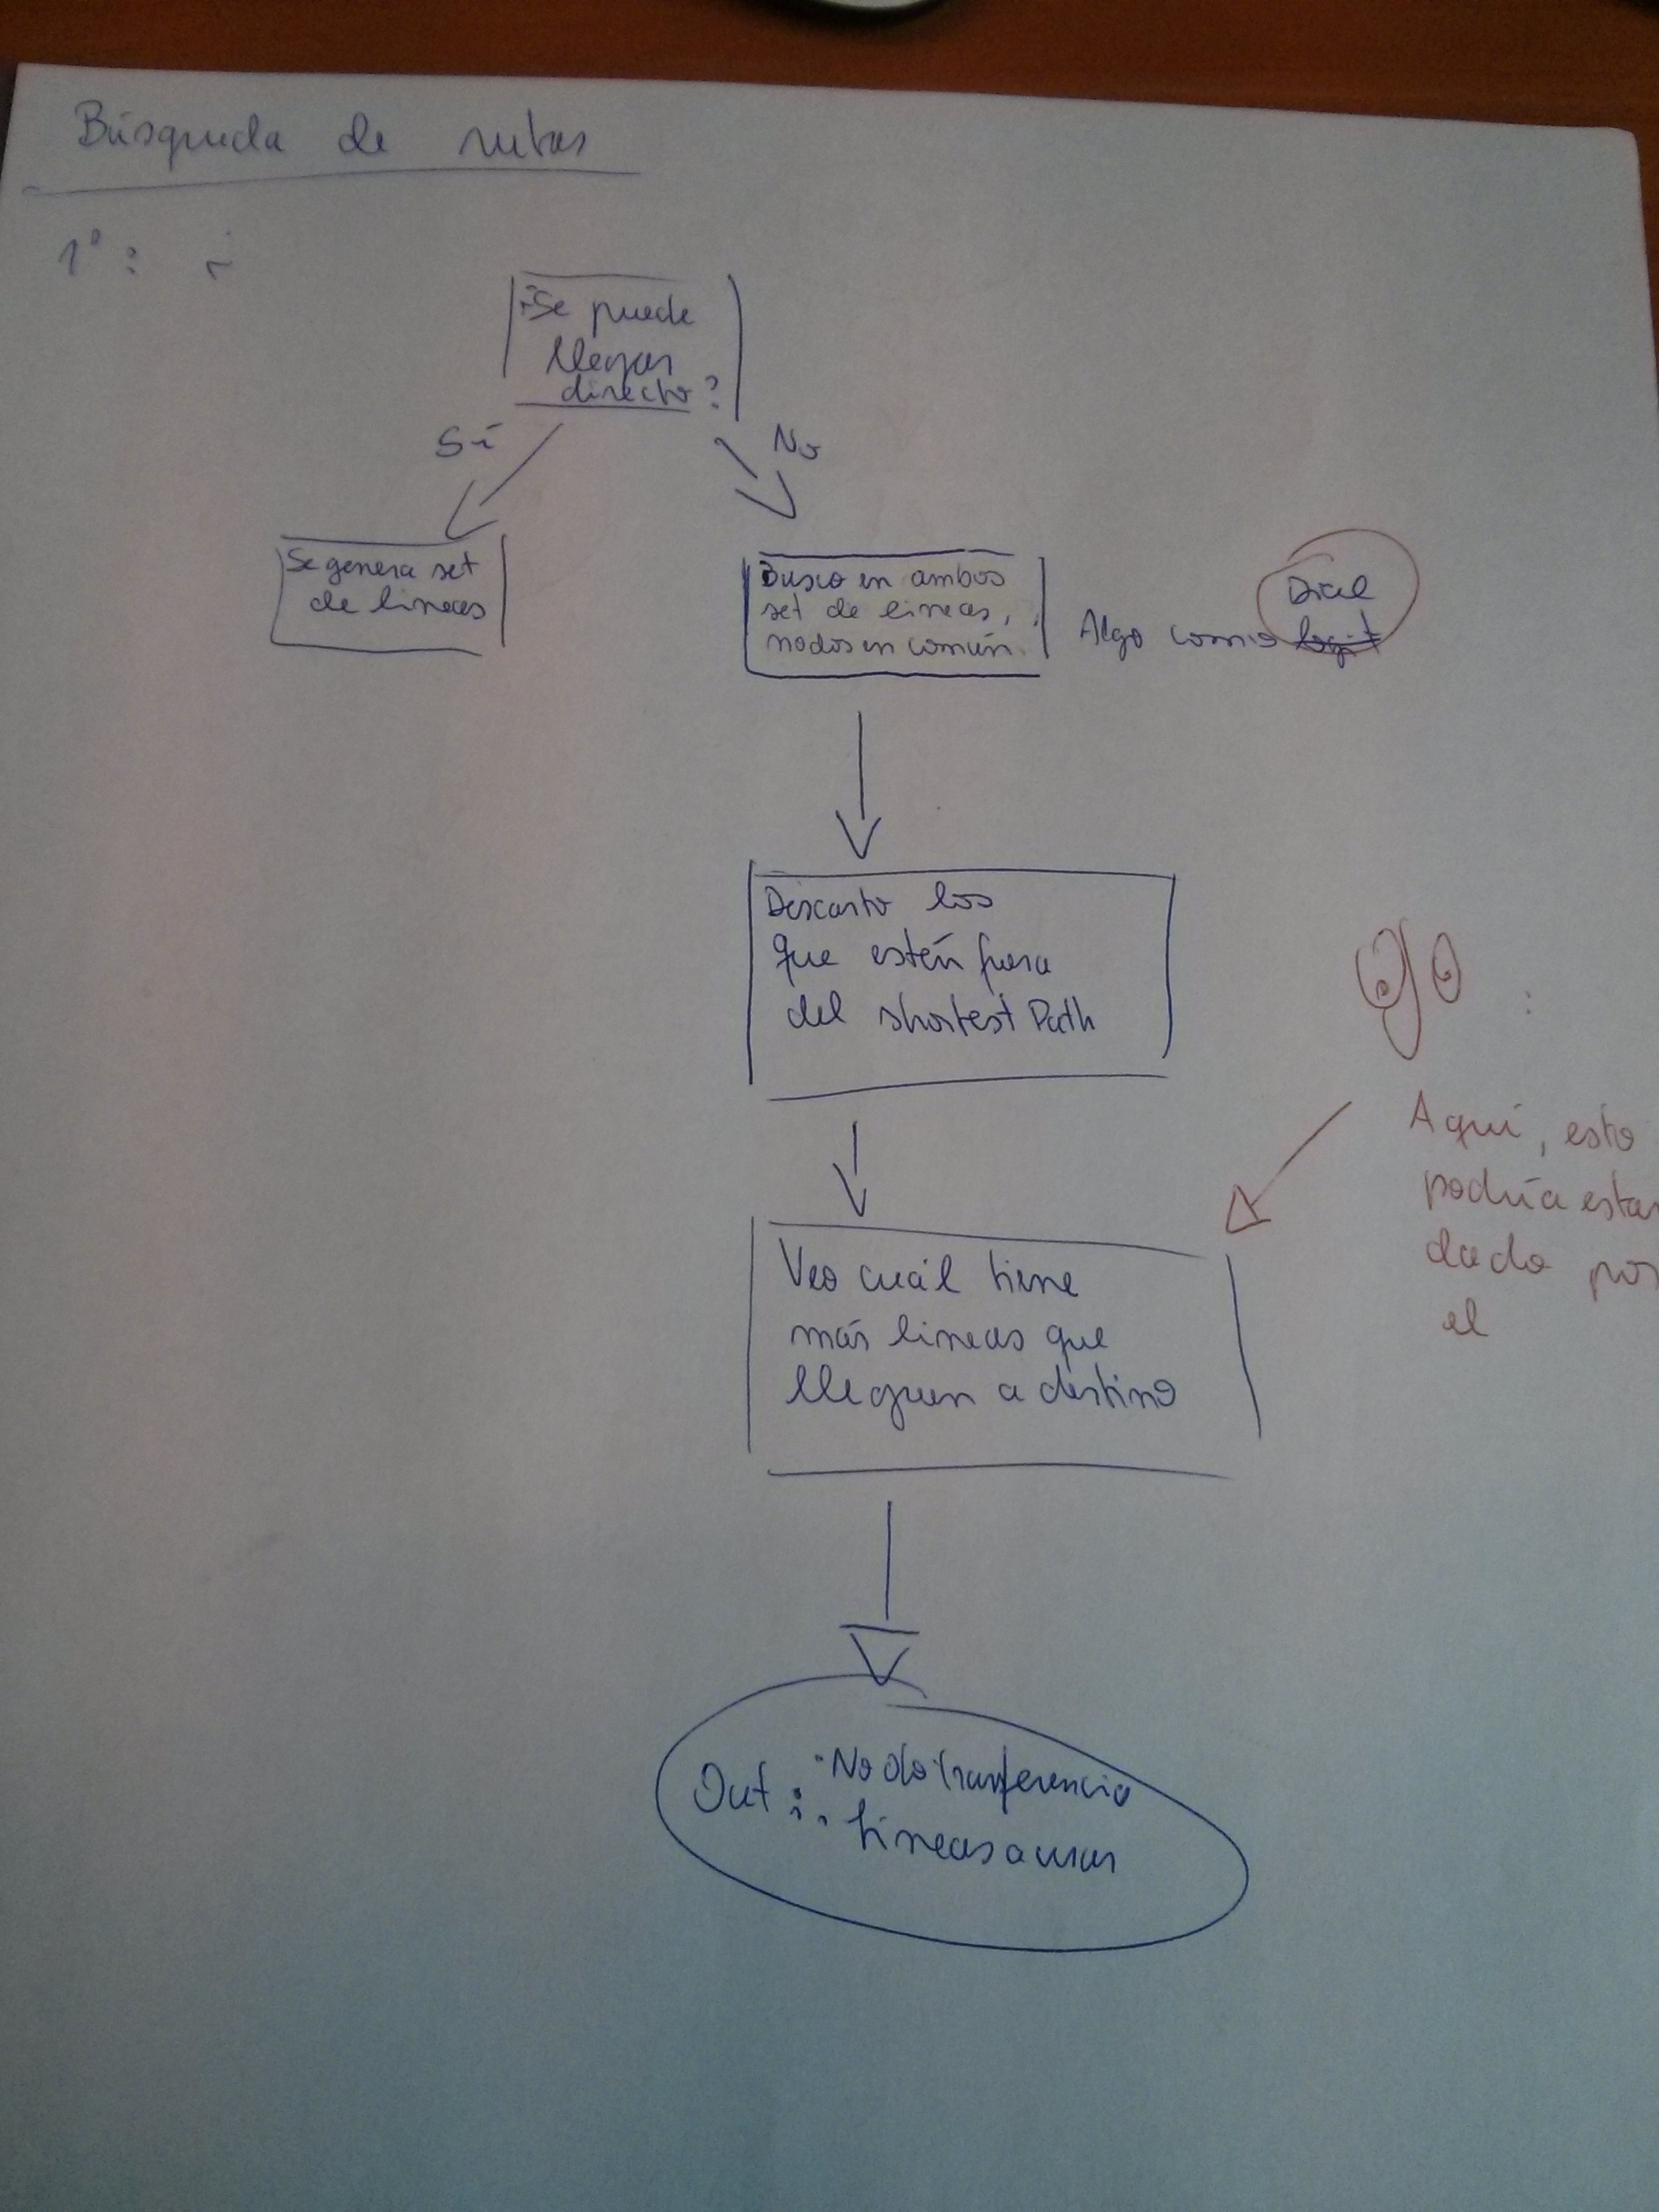 Búsqueda de rutas
1º: ¿
¿Se puede
llegar
directo?
Sí
No
Se genera set
de lineas
Busco en ambos
set de lineas,
nodos en común.
Dial
Algo como logit
Descarto los
que estén fuera
del shortest Path
Ojo :
Aquí, esto
podría estar
dado por
el
Veo cuál tiene
más lineas que
lleguen a destino
Out : · Nodo transferencia
· Lineas a usar